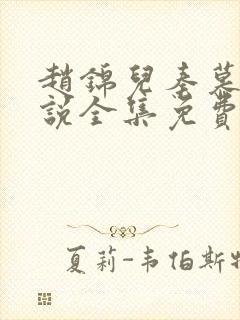 趙錦兒秦慕
說全集免費
夏莉-韦伯斯特